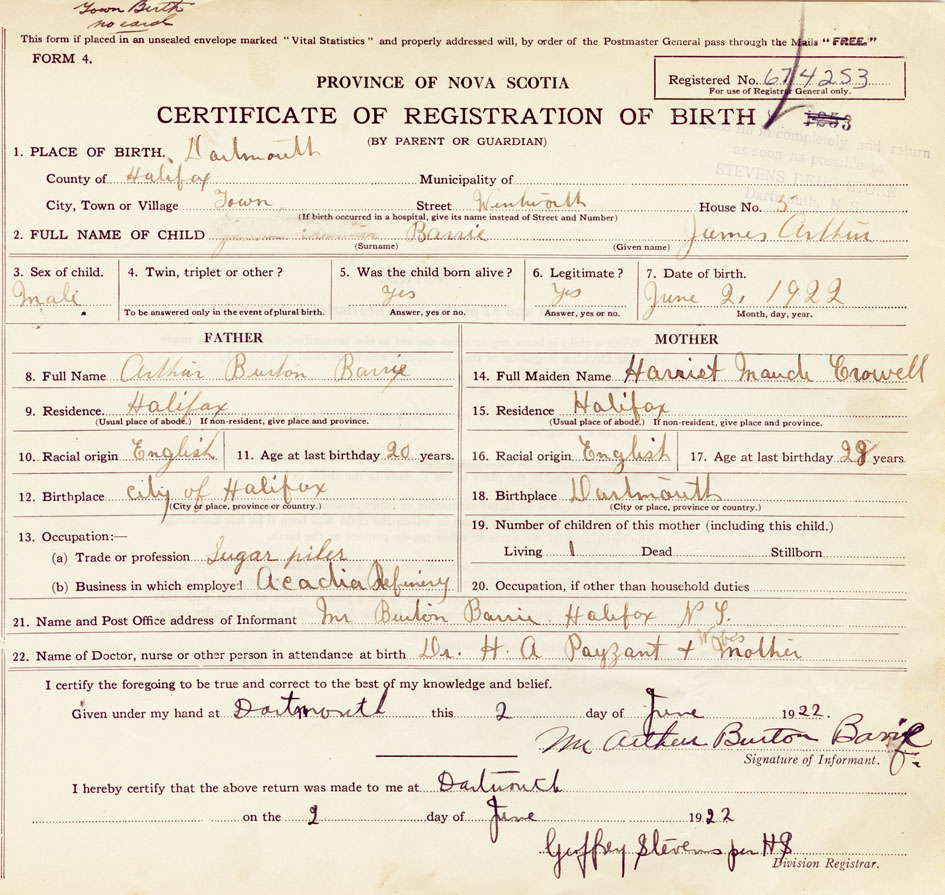 Town Birth
no card
This form if placed in an unsealed envelope marked "Vital Statistics" and properly addressed will, by order of the Postmaster General pass through the Mails "FREE."
FORM 4.
PROVINCE OF NOVA SCOTIA
Registered No. 674253
For use of Registrar General only.
CERTIFICATE OF REGISTRATION OF BIRTH
1253
(BY PARENT OR GUARDIAN)
Please fill in completely and return
as soon as possible to
STEVENS DRUG STORE
Dartmouth, N. S.
1. PLACE OF BIRTH. Dartmouth
County of Halifax Municipality of
City, Town or Village Town Street Wentworth House No. 5
(If birth occurred in a hospital, give its name instead of Street and Number)
2. FULL NAME OF CHILD Barrie James Arthur
(Surname) (Given name)
3. Sex of child. 4. Twin, triplet or other? 5. Was the child born alive? 6. Legitimate? 7. Date of birth.
Male Yes Yes June 2, 1922
To be answered only in the event of plural birth. Answer, yes or no. Answer, yes or no. Month, day, year.
FATHER MOTHER
8. Full Name Arthur Burton Barrie 14. Full Maiden Name Harriet Maude Crowell
9. Residence. Halifax 15. Residence Halifax
(Usual place of abode.) If non-resident, give place and province. (Usual place of abode.) If non-resident, give place and province.
10. Racial origin English 11. Age at last birthday 20 years. 16. Racial origin English 17. Age at last birthday 28 years
12. Birthplace city of Halifax 18. Birthplace Dartmouth
(City or place, province or country.) (City or place, province or country.)
13. Occupation:— 19. Number of children of this mother (including this child.)
(a) Trade or profession Sugar piler Living 1 Dead Stillborn
(b) Business in which employed Acadia Refinery 20. Occupation, if other than household duties
21. Name and Post Office address of Informant Mr Burton Barrie Halifax N S.
22. Name of Doctor, nurse or other person in attendance at birth Dr. H. A Payzant + Wife's Mother
I certify the foregoing to be true and correct to the best of my knowledge and belief.
Given under my hand at Dartmouth this 2 day of June 1922.
Mr Arthur Burton Barrie
Signature of Informant.
I hereby certify that the above return was made to me at Dartmouth
on the 2 day of June 1922
Geoffrey Stevens per HS
Division Registrar.